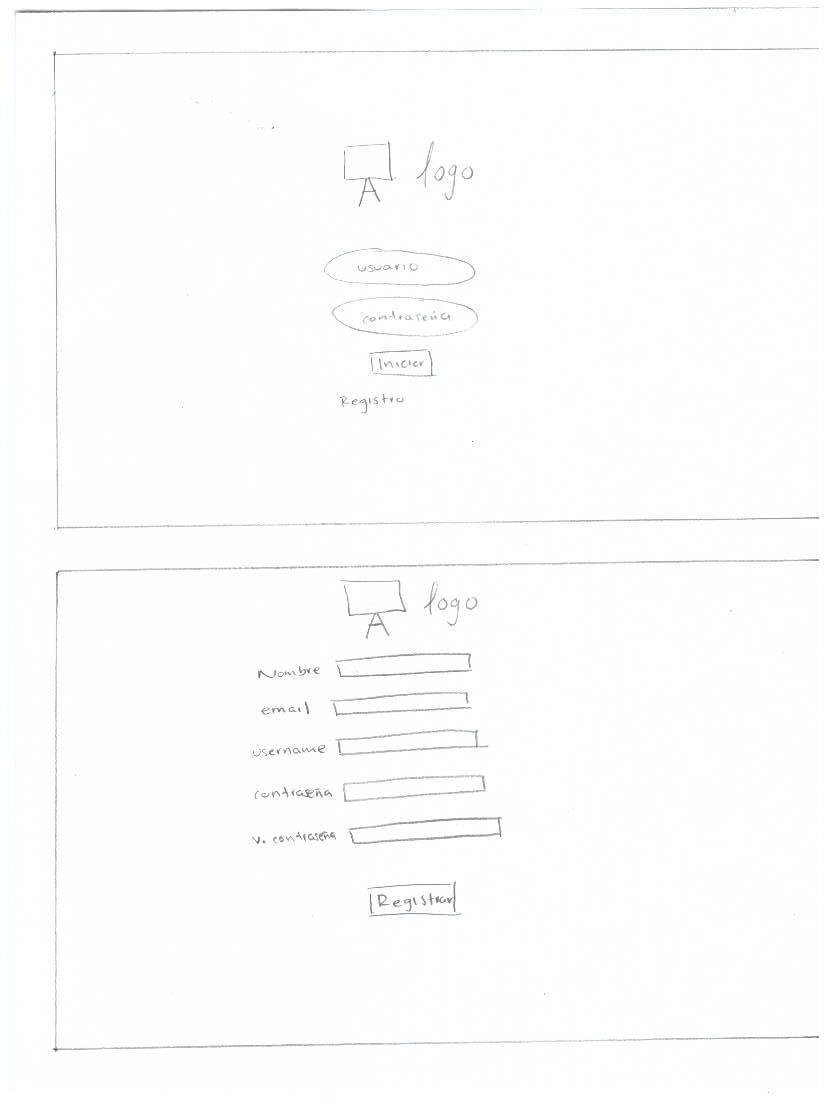 logo
usuario
contraseña
Iniciar
Registro
logo
Nombre
email
username
contraseña
v. contraseña
Registrar